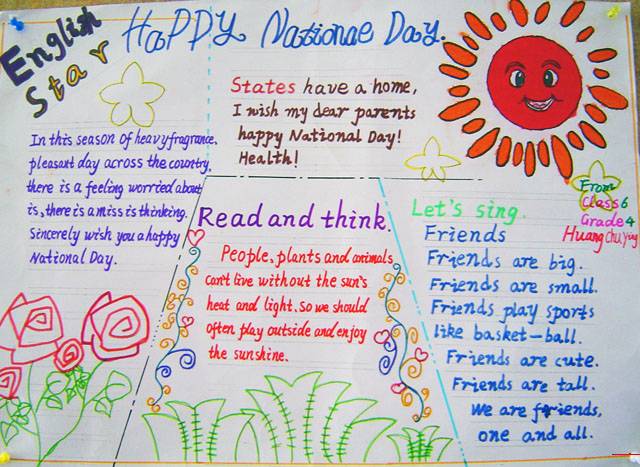 English
Star
HaPPY Nationae Day.
States have a home,
I wish my dear parents
happy National Day!
Health!
In this season of heavy fragrance.
pleasant day across the country,
there is a feeling worried about
is, there is a miss is thinking.
Sincerely wish you a happy
National Day.
Read and think.
People, plants and animals
can't live without the sun's
heat and light. So we should
often play outside and enjoy
the sunshine.
From
Class 6
Grade 4
Huang Chu Ying
Let's sing.
Friends
Friends are big.
Friends are small.
Friends play sports
like basket-ball.
Friends are cute.
Friends are tall.
We are friends,
one and all.